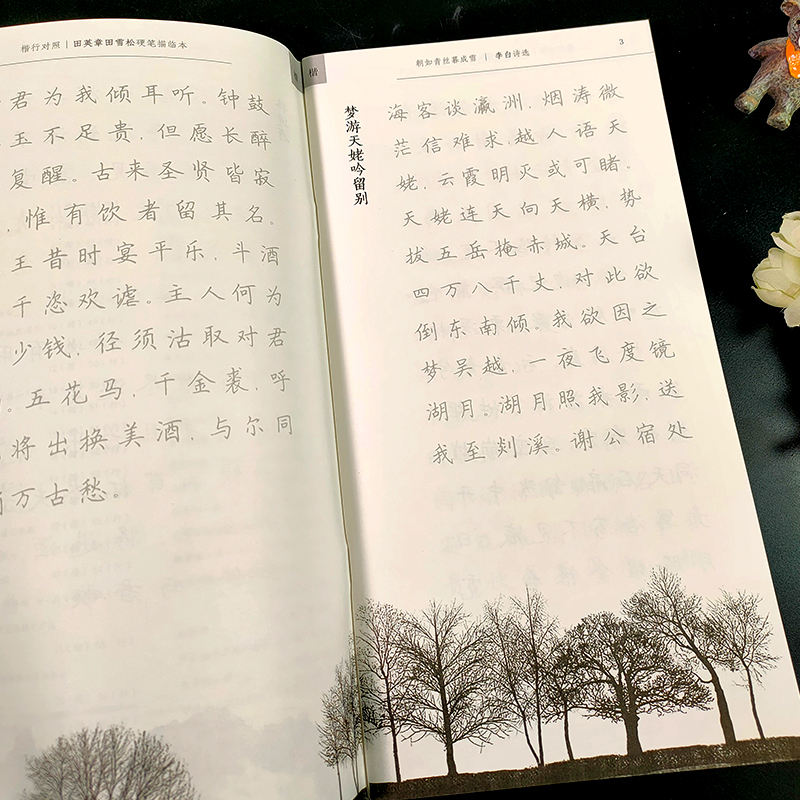 楷行对照 | 田英章田雪松硬笔描临本
君为我倾耳听。钟鼓
玉不足贵，但愿长醉
复醒。古来圣贤皆寂
，惟有饮者留其名。
王昔时宴平乐，斗酒
千恣欢谑。主人何为
少钱，径须沽取对君
。五花马，千金裘，呼
将出换美酒，与尔同
万古愁。
楷
朝如青丝暮成雪 | 李白诗选
3
梦游天姥吟留别
海客谈瀛洲，烟涛微
茫信难求，越人语天
姥，云霞明灭或可睹。
天姥连天向天横，势
拔五岳掩赤城。天台
四万八千丈，对此欲
倒东南倾。我欲因之
梦吴越，一夜飞度镜
湖月。湖月照我影，送
我至剡溪。谢公宿处